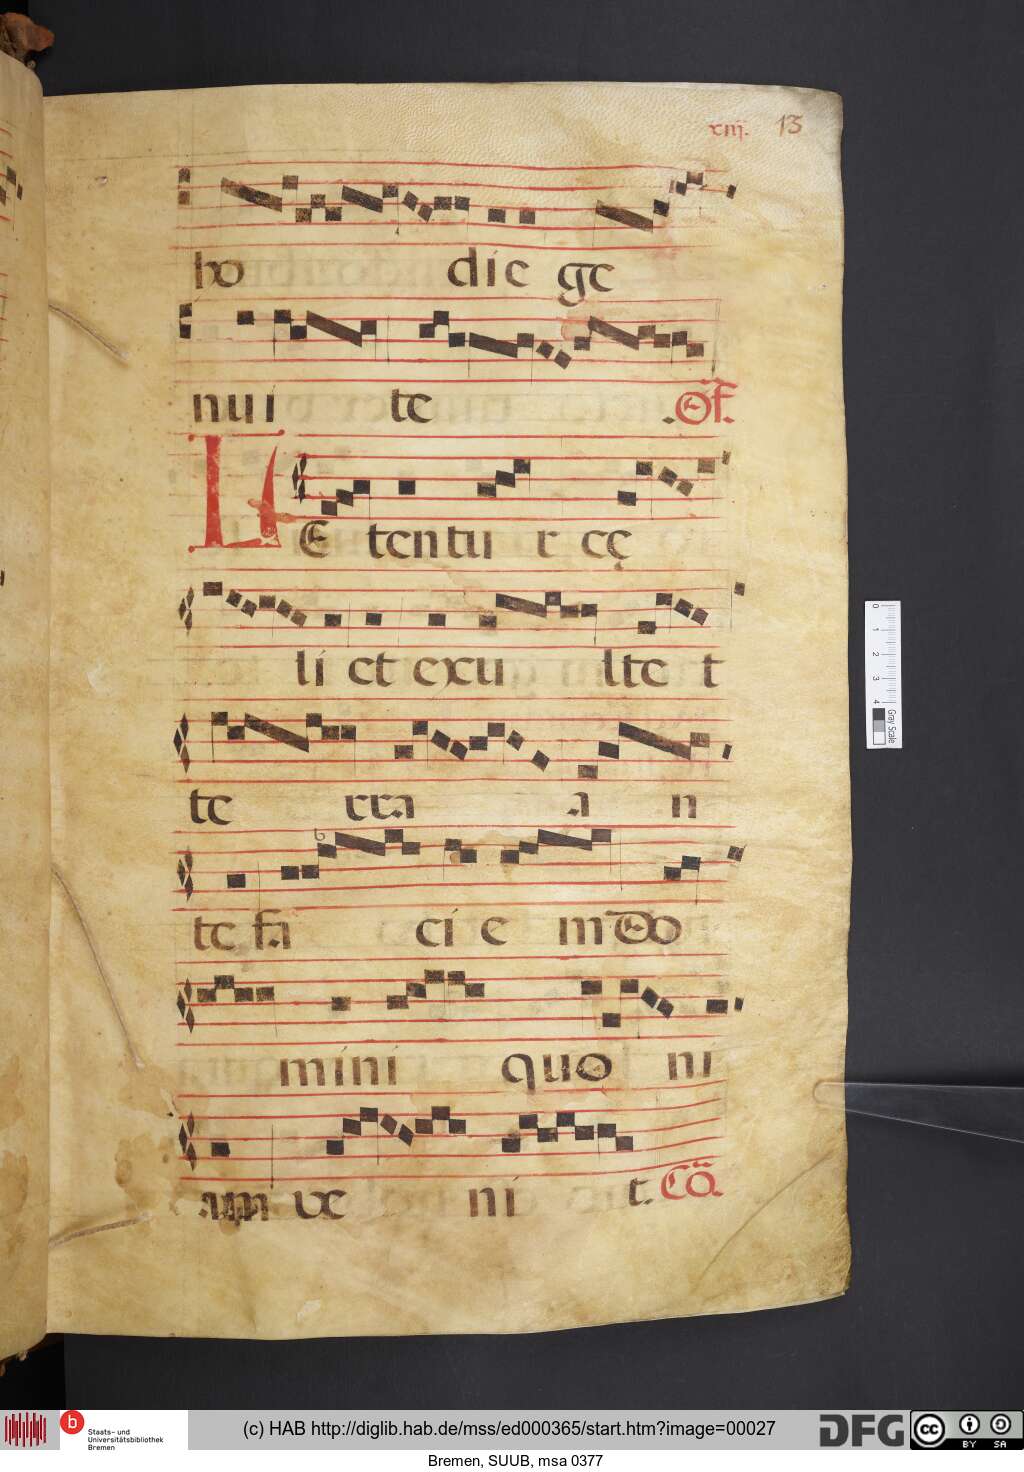 xiij. 13
ho die ge
nui te .Off.
LE tentur cę
li et excu lte t
te rra a n
te fa ci e m do
mini quo ni
am ve ni t. Cō.
0 1 2 3 4
Gray Scale
b Staats- und
Universitätsbibliothek
Bremen
(c) HAB http://diglib.hab.de/mss/ed000365/start.htm?image=00027
DFG
cc BY SA
Bremen, SUUB, msa 0377